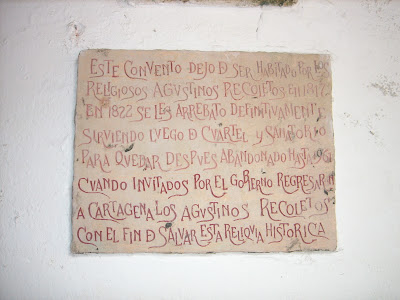 ESTE CONVENTO DEJO D SER HABITADO POR LOS
RELIGIOSOS AGUSTINOS RECOLETOS EN 1812
EN 1822 SE LES ARREBATO DEFINITIVAMENT
SIRVIENDO LUEGO D CUARTEL y SANATORIO
PARA QUEDAR DESPUES ABANDONADO HASTA 1961
CUANDO INVITADOS POR EL GOBERNO REGRESARON
A CARTAGENA LOS AGUSTINOS RECOLETOS
CON EL FIN D SALVAR ESTA RELIQUIA HISTORICA